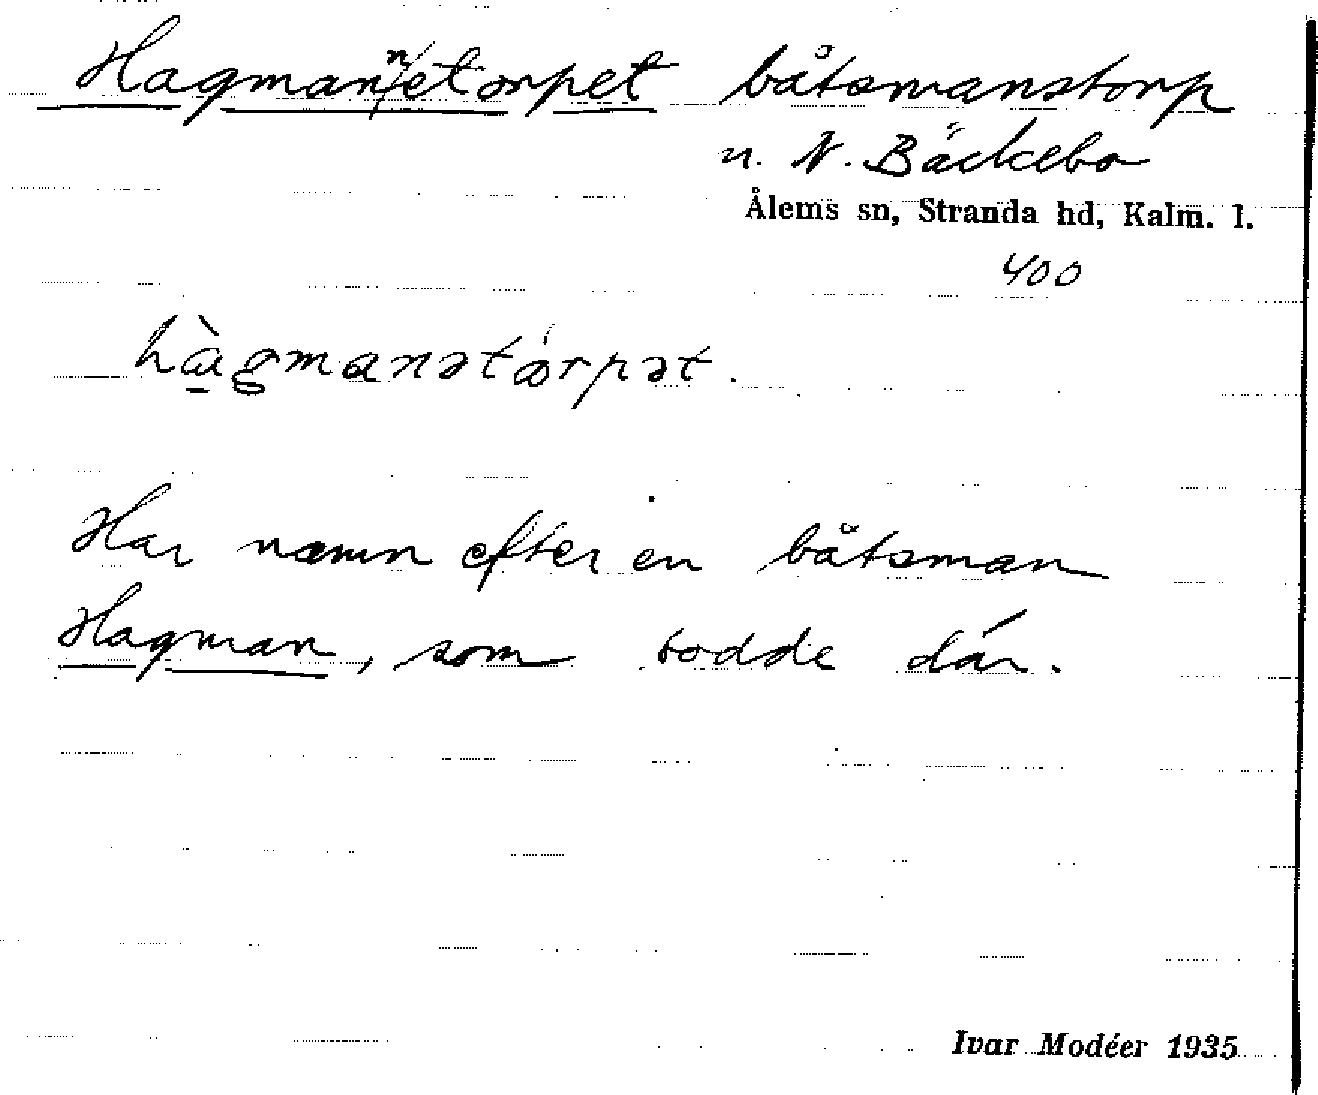 Hagmannetorpet båtsmanstorp
u. N. Bäckebo
Ålems sn, Stranda hd, Kalm. l.
400
hàgmanətórpət.
Har namn efter en båtsman
Hagman, som bodde där.
Ivar Modéer 1935